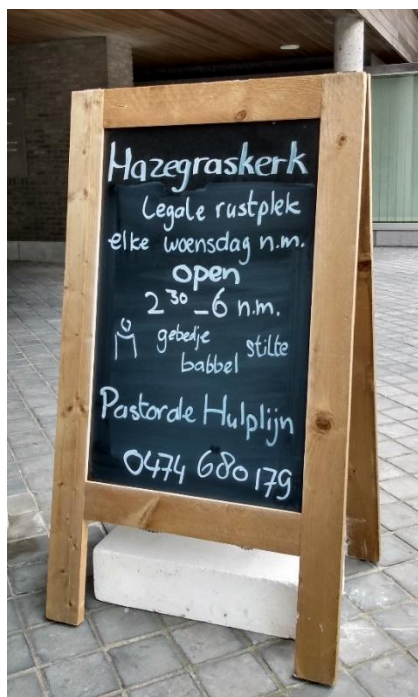 Hazegraskerk
Legale rustplek
elke woensdag n.m.
open
2³⁰ - 6 n.m.
gebedje stilte
babbel
Pastorale Hulplijn
0474 680179